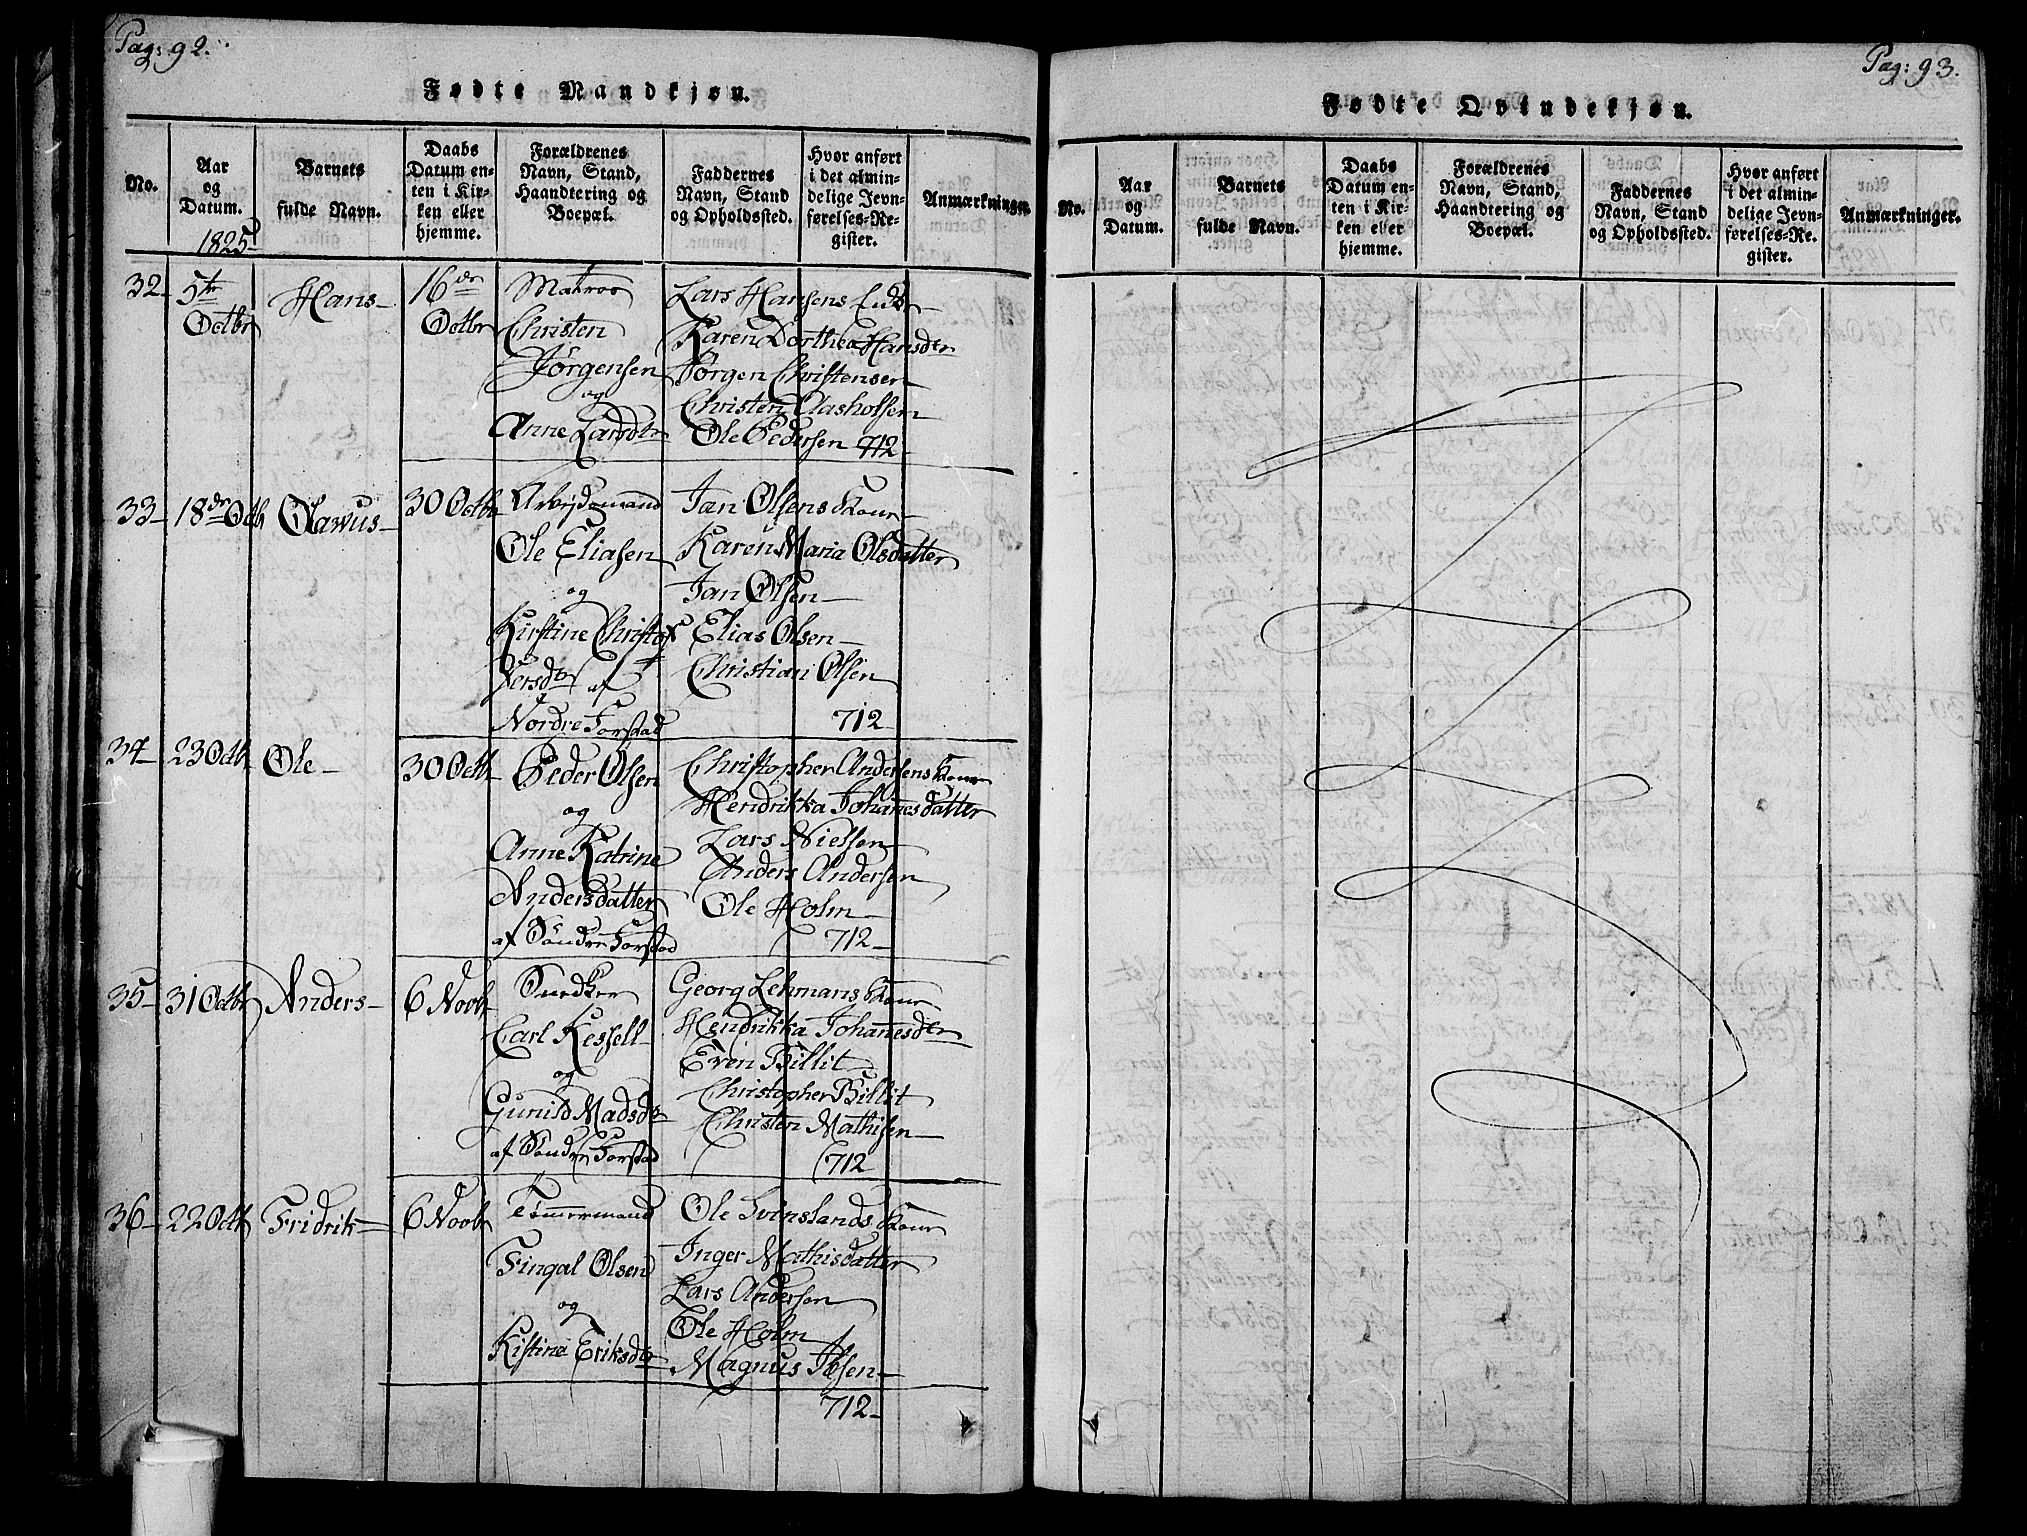 Pag: 92.
Fødte Mandkjøn.
No.
Aar
og
Datum.
1825
Barnets
fulde Navn.
Daabs
Datum en-
ten i Kir-
ken eller
hjemme.
Forældrenes
Navn, Stand,
Haandtering og
Boepæl.
Faddernes
Navn, Stand
og Opholdssted.
Hvor anført
i det almin-
delige Jevn-
førelses-Re-
gister.
Anmærkninger.
32
5te
Octbr
Hans
16de
Octbr
Matros
Christen
Jörgensen
og
Anne Larsdtr
Lars Hansens
Karen Dorthea Hansdtr
Jörgen Christensen
Christen Clasholsen
Ole Pedersen
712
33
18de Octb
Olavus
30 Octb
Arbejdsmand
Ole Eliasen
og
Kirstine Christof
versdtr af
Nordre Forstad
Jan Olsens Kone
Karen Maria Olsdatter
Jan Olsen
Elias Olsen
Christian Olsen
712
34
23 Octb
Ole
30 Octb
Peder Olsen
og
Anne Katrine
Andersdatter
af Söndre Forstad
Christopher Andersens Kone
Hendrikka Johannesdatter
Lars Nielsen
Anders Andersen
Ole Holm
712
35
31 Octbr
Anders
6 Novb
Snedker
Carl Kessell
og
Gunild Madsdtr
af Söndre Forstad
Georg Lehmans Kone
Hendrikka Johannesdtr
Even Billit
Christopher Billit
Christen Mathisen
712
36
22 Octb
Fridrik
6 Novbr
Tömmermand
Fingal Olsen
og
Kistine Eriksdtr
Ole Svinslands Kone
Inger Mathisdatter
Lars Andersen
Ole Holm
Magnus Ibsen
712
Pag: 93.
Fødte Qvindekjøn.
No.
Aar
og
Datum.
Barnets
fulde Navn.
Daabs
Datum en-
ten i Kir-
ken eller
hjemme.
Forældrenes
Navn, Stand,
Haandtering og
Boepæl.
Faddernes
Navn, Stand
og Opholdssted.
Hvor anført
i det almin-
delige Jevn-
førelses-Re-
gister.
Anmærkninger.